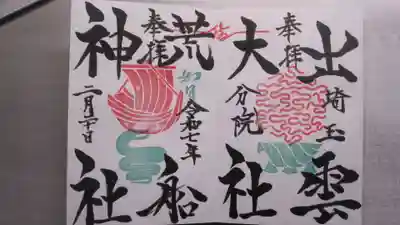 出雲
奉拝
埼玉
大社
分院
荒船
奉拝
令和七年
如月
神社
二月二十日